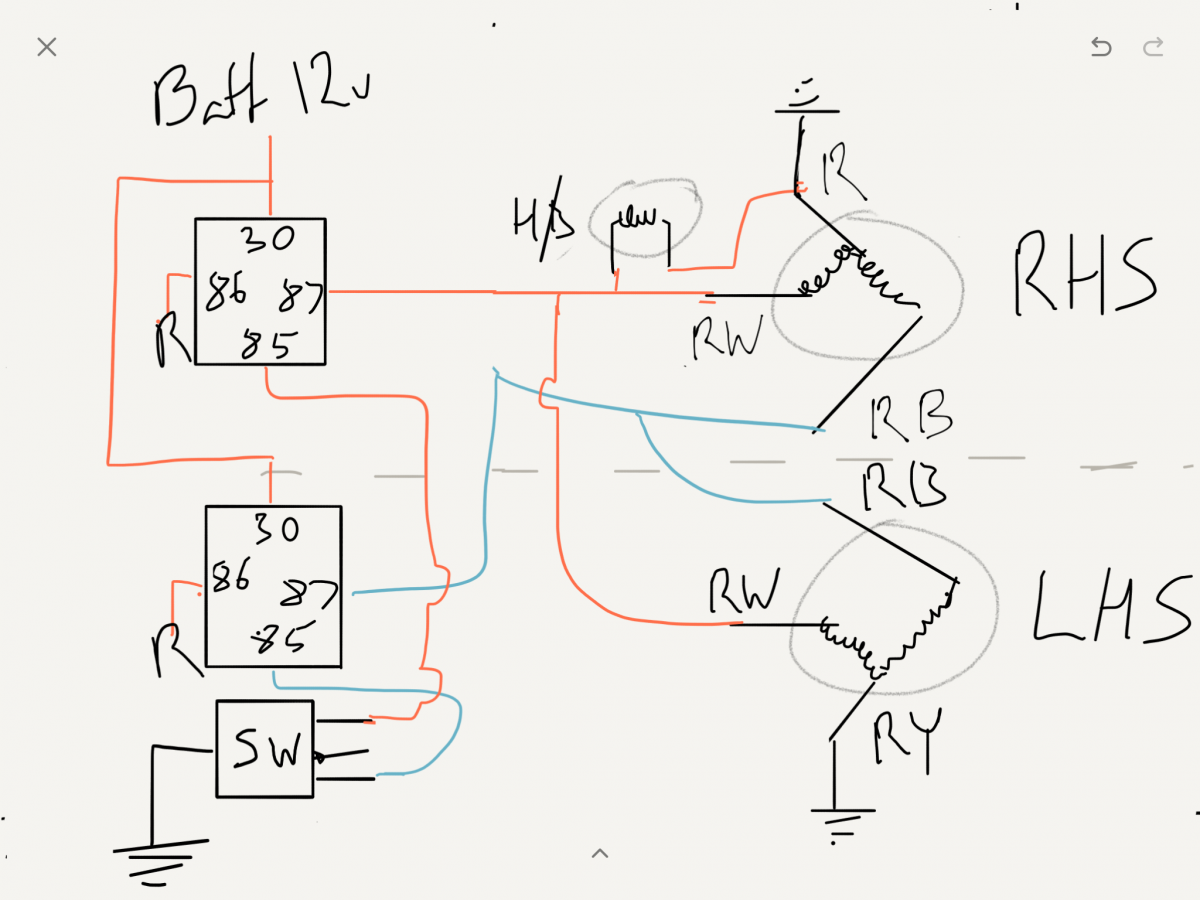 Batt 12v
30
86 87
85
R
H/B
R
RW
RHS
RB
RB
30
86 87
85
R
RW
LHS
RY
SW